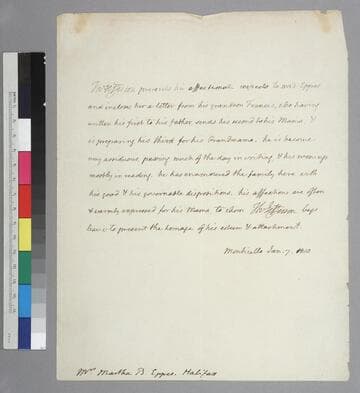 Th: Jefferson presents his affectionate respects to mrs Eppes
and incloses her a letter from his grandson Francis, who having
written his first to his father, sends his second to his Mama, &
is preparing his third for his Grandmama. he is become
very assiduous, passing much of the day in writing & his evenings
mostly in reading. he has enamoured the family here with
his good & his governable dispositions. his affections are often
& warmly expressed for his Mama, to whom Th: Jefferson begs
leave to present the homage of his esteem & attachment.
Monticello Jan. 7. 1810
Mrs Martha B Eppes. Halifax